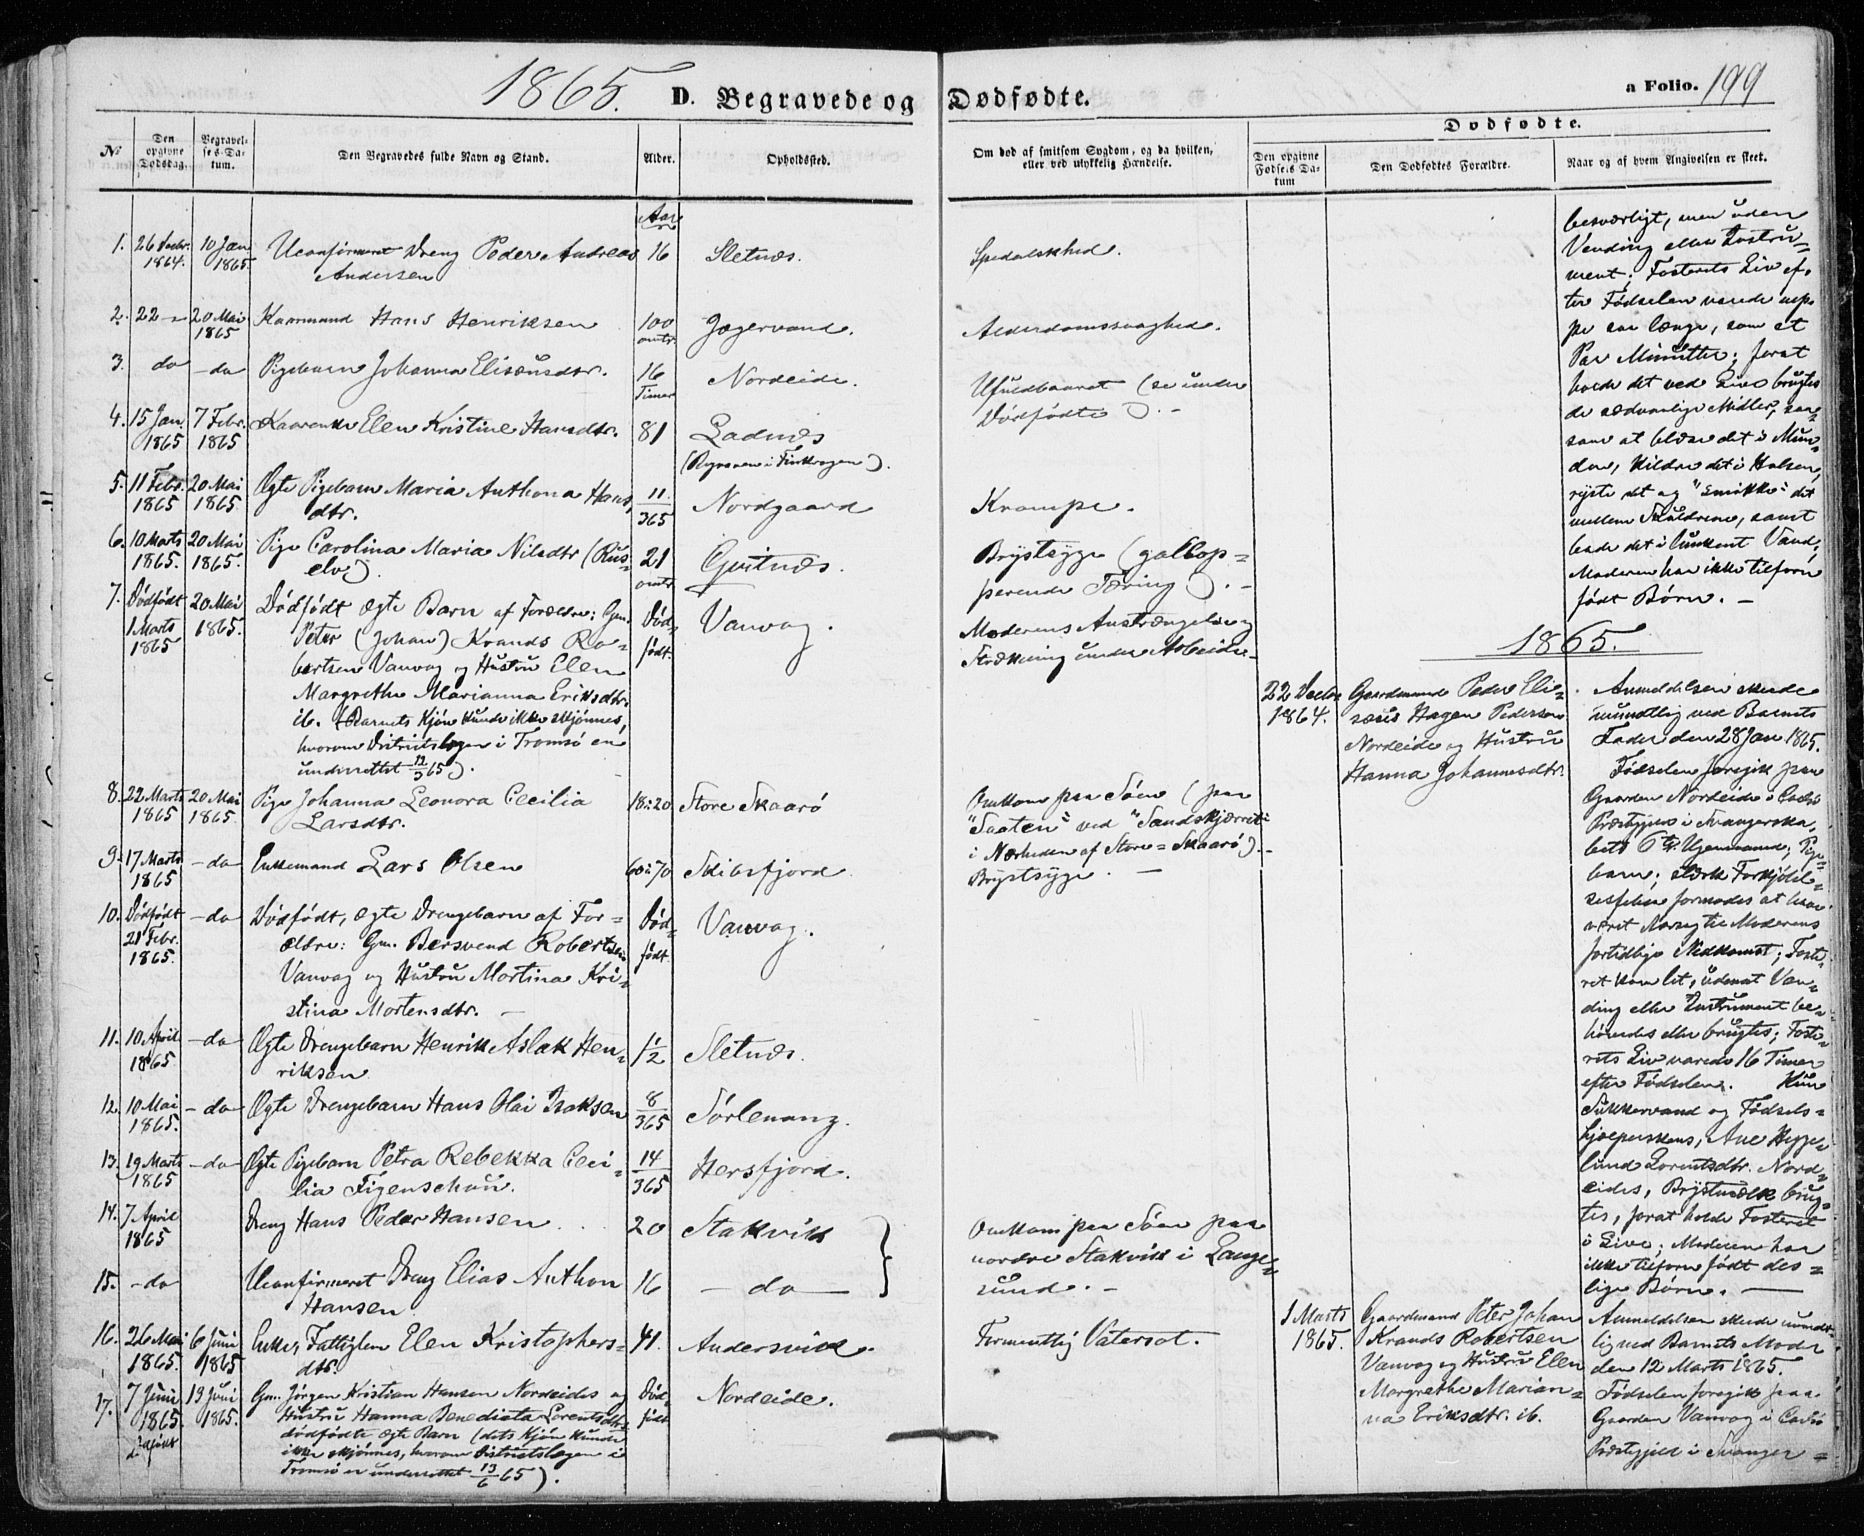 1865. D. Begravede og Dødfødte.
a Folio. 199
№
Den opgivne Dødsdag.
Begravelses-Datum.
Den Begravedes fulde Navn og Stand.
Alder.
Opholdssted.
Om død af smitsom Sygdom, og da hvilken,
eller ved ulykkelig Hændelse.
Dødfødte.
Den opgivne Fødsels Datum
Den Dødfødtes Forældre.
Naar og af hvem Angivelsen er skeet.
Aar
1. 26 Decbr. 1864. 10 Jan 1865. Uconfirmeret Dreng Peder Andreas 16 Sletnæs. Spedalskhed.
Andersen
2. 22 – 20 Mai 1865 Kaarmand Hans Henriksen 100 omtr. Jægervand. Alderdomssvaghed.
3. do – do Pigebarn Johanna Elisæusdtr. 16 Timer Nordeide. Ufuldbaaret (se under
Dødfødte). –
4. 15 Jan. 1865 7 Febr. 1865 Kaarenke Elen Kristine Hansdtr. 81 Ladnæs
5. 11 Febr. 1865 20 Mai 1865. Ægte Pigebarn Maria Anthona Hans 11/365 Nordgaard Krampe.
dtr.
6. 10 Marts 1865. 20 Mai 1865. Pige Carolina Maria Nilsdtr (Rus-
elv). 21 omtr. Gvitnæs. Brystsyge (gallop-
perende Tæring). –
7. Dødfødt 1 Marts 1865 20 Mai 1865. Dødfødt ægte Barn af Forældre: Gm. Død-født. Vanvag. Moderens Anstrængelse og
Peter (Johan) Krands Ro- Strækning under Arbeide –
bertsen Vanvag og Hustru Elen
Margrethe Marianna Eriksdtr.
ib. (Barnets Kjøn kunde ikke skjønnes,
hvorom Districtslægen i Tromsø er
underrettet 12/3 65).
8. 22 Marts 1865 20 Mai 1865. Pige Johanna Leonora Cecilia 18 à 20 Store Skaarø Omkom paa Søen (paa
Larsdtr. "Saaten" ved "Sandskjærret"
i Nærheden af Store-Skaarø). –
9. 17 Marts 1865 – do Enkemand Lars Olsen 60 à 70 Skibsfjord Brystsyge. –
10. Dødfødt 21 Febr. 1865. – do Dødfødt, ægte Drengebarn af For- Død-født. Vanvag.
ældre: Gm. Bersvend Robertsen
Vanvag og Hustru Martina Kri-
stina Mortensdtr. –
11. 10 April 1865. – do Ægte Drengebarn Henrik Aslak Hen- 1/2 Sletnæs.
riksen
12. 10 Mai 1865. – do Ægte Drengebarn Hans Olai Isaksen 8/365 Sørlenang.
13. 19 Marts 1865 – do Ægte Pigebarn Petra Rebekka Ceci- 14/365 Hersfjord.
lia Figenschau.
14. 7 April 1865 Dreng Hans Peder Hansen 20 Stakvik Omkom paa Søen paa
nordre Stakvik i Lange-
sund. –
15. – do Uconfirmeret Dreng Elias Anthon 16 – do –
Hansen
16. 26 Mai 1865. 6 Juni 1865 Enke, Fattiglem Elen Kristophers- 41. Andersvik. Formentlig Vatersot.
dtr.
17. 7 Juni 1865. Dødfødt 13 Juni 1865. Gm. Jørgen Kristian Hansen Nordeides og Død-født Nordeide.
Hustru Hanna Benedicta Lorentsdtrs
dødfødte ægte Barn (dets Kjøn kunde
ikke skjønnes, hvorom Districtslægen i
Tromsø er underrettet 13/6 65).
besværligt, men uden
Vending eller Instru-
ment; Fosterets Liv ef-
ter Fødselen varede nep-
pe saa længe, som et
Par Minutter; forat
holde det ved Live brugtes
de sædvanlige Midler, saa-
som at blæse det i Mun-
den, kildre det i Halsen,
ryste det og "smække" det
mellem Skuldrene, samt
bade det i lunkent Vand;
Moderen har ikke tilforn
født Børn. –
1865.
22 Decbr 1864. Gaardmand Peder Eli-
sæus Hagen Pedersen
Nordeide og Hustru
Hanna Johannesdtr.
Anmeldelsen skede
mundtlig ved Barnets
Fader den 28 Jan 1865.
Fødselen foregik paa
Gaarden Nordeide i Carlsø
Præstegjeld i Svangerska-
bets 6te Ugemaaned; Pige-
barn; stærk Forkjølel-
sesfeber formodes at have
været Aarsag til Moderens
fortidlige Nedkomst; Foste-
ret kom let, uden at Ven-
ding eller Instrument be-
høvedes eller brugtes; Foste-
rets Liv varede 16 Timer
efter Fødselen. Kun
Sukkervand og Fødsels-
hjælperskens, Ane Hegge-
lund Lorentsdtr. Nord-
eides, Brystmælk brug-
tes, forat holde Fosteret
i Live; Moderen har
ikke tilforn født des-
lige Børn. –
1 Marts 1865. Gaardmand Peter Johan
Krands Robertsen
Vanvag og Hustru Elen
Margrethe Marian-
na Eriksdtr. ib.
Anmeldelsen skede mundt-
lig ved Barnets Moder
den 12 Marts 1865.
Fødselen foregik paa
Gaarden Vanvag i Carlsø
Præstegjeld i Svanger-